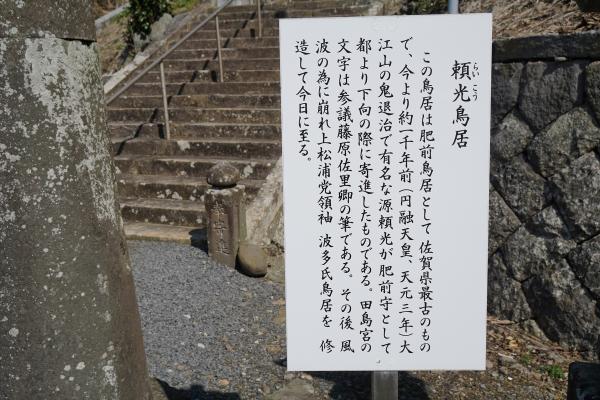 頼光鳥居
らいこう
この鳥居は肥前鳥居として佐賀県最古のもの
で、今より約一千年前(円融天皇、天元三年)大
江山の鬼退治で有名な源頼光が肥前守として
都より下向の際に寄進したものである。田島宮の
文字は参議藤原佐里卿の筆である。その後 風
波の為に崩れ上松浦党領袖 波多氏鳥居を 修
造して今日に至る。